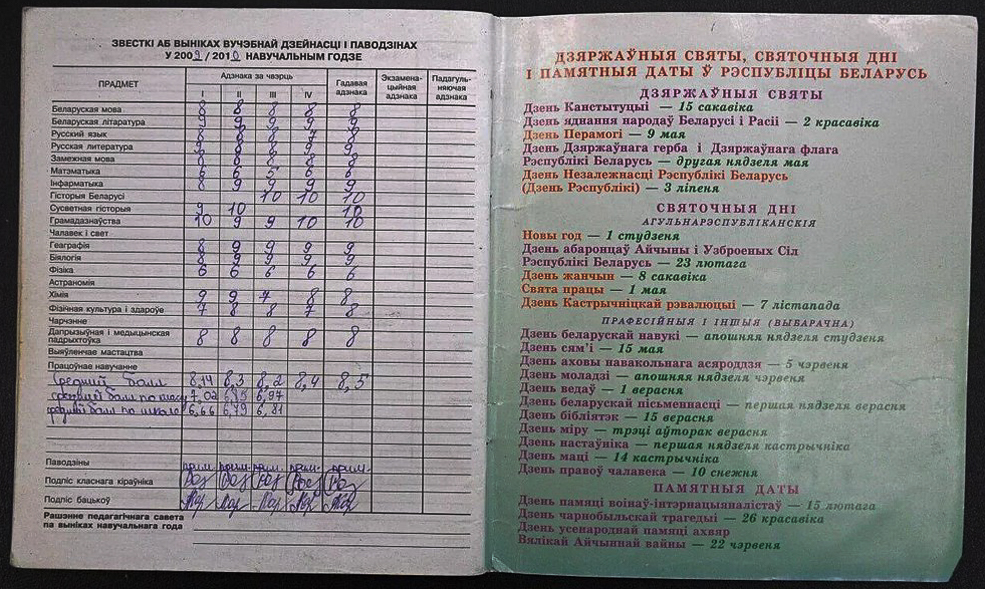 ЗВЕСТКІ АБ ВЫНІКАХ ВУЧЭБНАЙ ДЗЕЙНАСЦІ І ПАВОДЗІНАХ
У 2009 / 2010 НАВУЧАЛЬНЫМ ГОДЗЕ
ПРАДМЕТ Адзнака за чвэрць Гадавая адзнака Экзамена-цыйная адзнака Падагуль-няючая адзнака
I II III IV
Беларуская мова 8 8 8 8 8
Беларуская літаратура 9 9 9 9 9
Русский язык 8 8 8 7 8
Русская литература 9 8 8 9 9
Замежная мова 8 8 8 8 8
Матэматыка 6 6 5 6 6
Інфарматыка 8 9 9 9 9
Гісторыя Беларусі 10 10 10
Сусветная гісторыя 9 10 10
Грамадазнаўства 10 9 9 10 10
Чалавек і свет
Геаграфія 8 9 9 9 9
Біялогія 8 9 9 9 9
Фізіка 6 6 6 6 6
Астраномія
Хімія 9 9 7 8 8
Фізічная культура і здароўе 7 8 8 7 8
Чарчэнне
Дапрызыўная і медыцынская
падрыхтоўка 8 8 8 8 8
Выяўленчае мастацтва
Працоўнае навучанне
Средний балл 8,14 8,3 8,2 8,4 8,5
средний бал по 7,02 6,95 6,97
средний бал по школе 6,66 6,79 6,81
Паводзіны прим. прим. прим. прим. прим.
Подпіс класнага кіраўніка
Подпіс бацькоў
Рашэнне педагагічнага савета
па выніках навучальнага года
ДЗЯРЖАЎНЫЯ СВЯТЫ, СВЯТОЧНЫЯ ДНІ
І ПАМЯТНЫЯ ДАТЫ Ў РЭСПУБЛІЦЫ БЕЛАРУСЬ
ДЗЯРЖАЎНЫЯ СВЯТЫ
Дзень Канстытуцыі — 15 сакавіка
Дзень яднання народаў Беларусі і Расіі — 2 красавіка
Дзень Перамогі — 9 мая
Дзень Дзяржаўнага герба і Дзяржаўнага флага
Рэспублікі Беларусь — другая нядзеля мая
Дзень Незалежнасці Рэспублікі Беларусь
(Дзень Рэспублікі) — 3 ліпеня
СВЯТОЧНЫЯ ДНІ
АГУЛЬНАРЭСПУБЛІКАНСКІЯ
Новы год — 1 студзеня
Дзень абаронцаў Айчыны і Узброеных Сіл
Рэспублікі Беларусь — 23 лютага
Дзень жанчын — 8 сакавіка
Свята працы — 1 мая
Дзень Кастрычніцкай рэвалюцыі — 7 лістапада
ПРАФЕСІЙНЫЯ І ІНШЫЯ (ВЫБАРАЧНА)
Дзень беларускай навукі — апошняя нядзеля студзеня
Дзень сям'і — 15 мая
Дзень аховы навакольнага асяроддзя — 5 чэрвеня
Дзень моладзі — апошняя нядзеля чэрвеня
Дзень ведаў — 1 верасня
Дзень беларускай пісьменнасці — першая нядзеля верасня
Дзень бібліятэк — 15 верасня
Дзень міру — трэці аўторак верасня
Дзень настаўніка — першая нядзеля кастрычніка
Дзень маці — 14 кастрычніка
Дзень правоў чалавека — 10 снежня
ПАМЯТНЫЯ ДАТЫ
Дзень памяці воінаў-інтэрнацыяналістаў — 15 лютага
Дзень чарнобыльскай трагедыі — 26 красавіка
Дзень усенароднай памяці ахвяр
Вялікай Айчыннай вайны — 22 чэрвеня